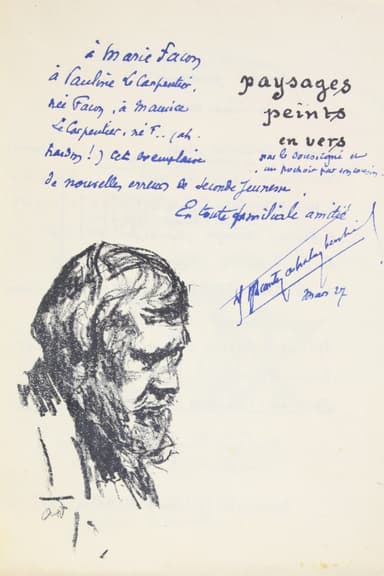 à Marie Facon
à Pauline Le Carpentier,
née Facon, à Maurice
Le Carpentier, né F.. (ah.
pardon!) cet exemplaire
de nouvelles erreurs de seconde jeunesse.
En toute familiale amitié
paysages
peints
en vers
par le soussigné et
un pochoir par
Mars 27